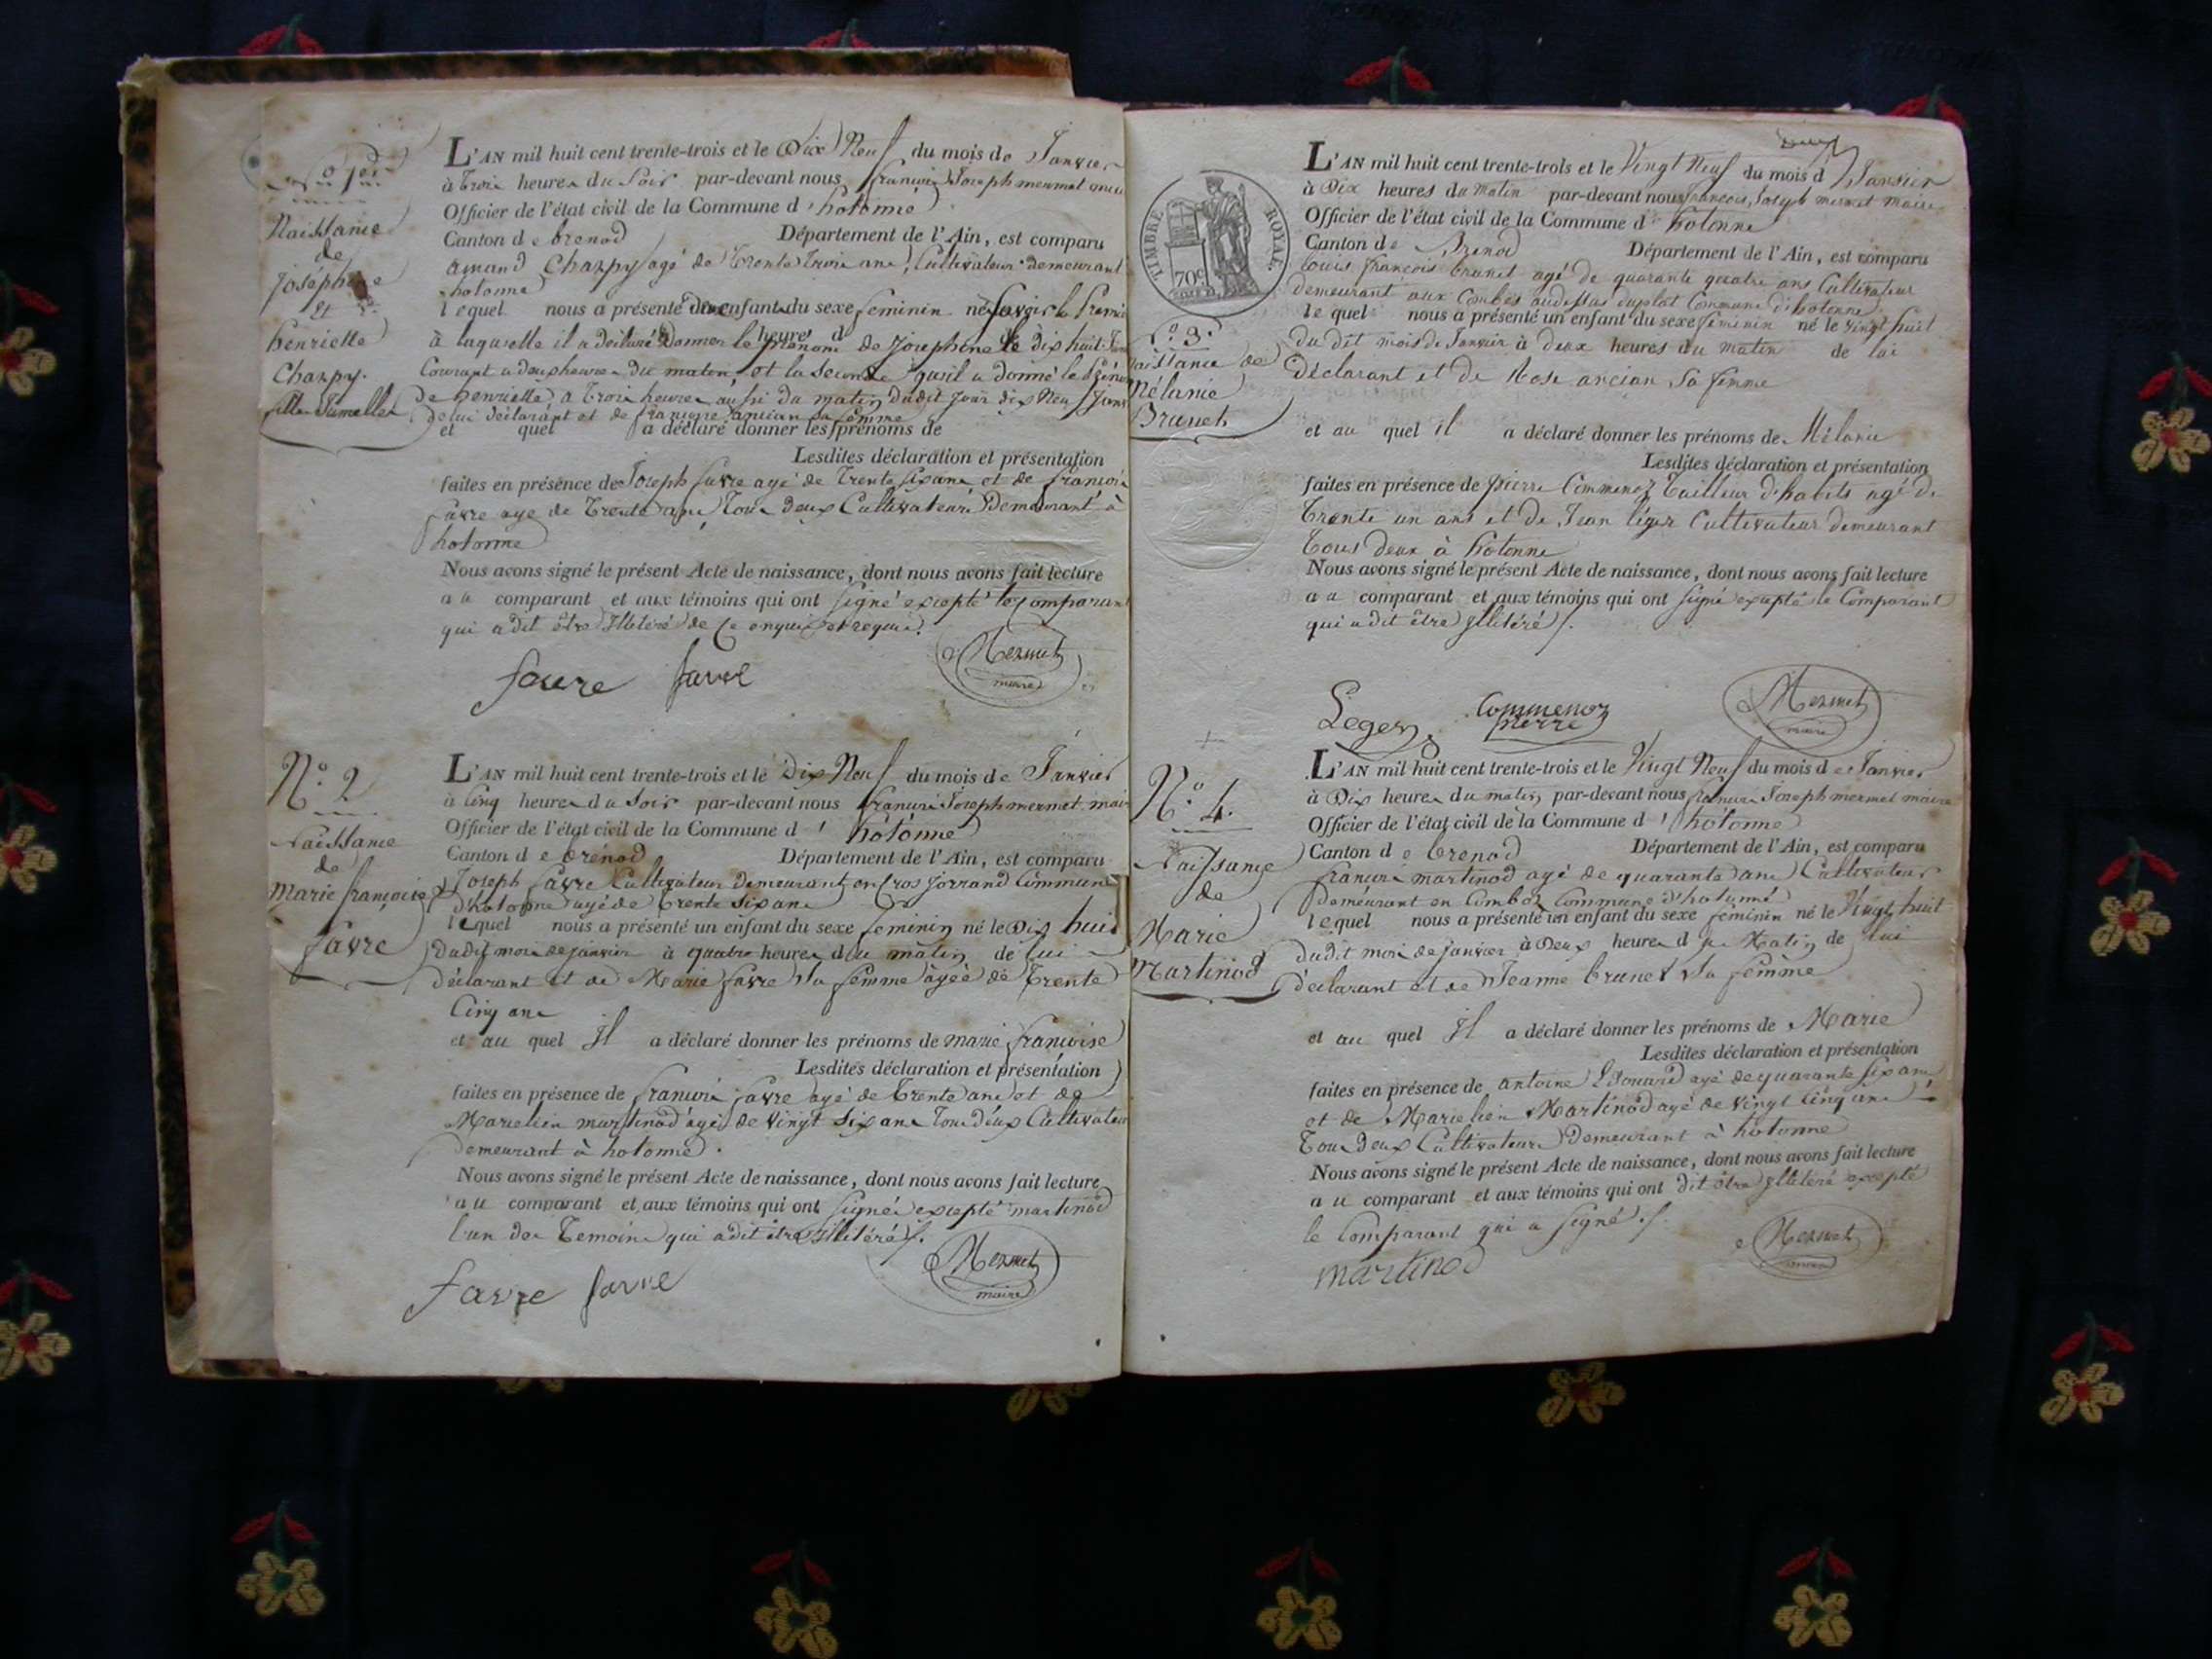 Naissance
de
Joséphine
et de
henriette
Charpy.
filles Jumelles
L'AN mil huit cent trente-trois et le Dix Neuf du mois de Janvier
à trois heures du soir par-devant nous françois Joseph mermet maire
Officier de l'état civil de la Commune d'hotonne
Canton de brenod Département de l'Ain, est comparu
amand Charpy agé de trente trois ans, Cultivateur demeurant
hotonne
lequel nous a présenté deux enfants du sexe feminin né savoir la premier
à laquelle il a déclaré donner le prénom de Josephine le dix huit
heures d
Courant a deux heures du maten, et la seconde quil a donné le
de henriette, a trois heures aussi du matin dudit jour dix Neuf Janv
de lui déclarant et de françoise ancian sa femme
et quel a déclaré donner les prénoms de
Lesdites déclaration et présentation
faites en présence de Joseph favre agé de trente six ans et de françois
favre age de trente ans tous deux Cultivateurs Demeurant à
hotonne
Nous avons signé le présent Acte de naissance, dont nous avons fait lecture
au comparant et aux témoins qui ont signé excepté le comparant
qui a dit être Illétéré de ce enquis et requis.
favre favre Mermet
maire
N.° 2
Naissance
de
Marie françoise
favre
L'AN mil huit cent trente-trois et le Dix Neuf du mois de Janvier
à Cinq heures du soir par-devant nous françois Joseph mermet maire
Officier de l'état civil de la Commune d'hotonne
Canton de brénod Département de l'Ain, est comparu
Joseph favre Cultivateur demeurant en Cros Jorrand Commune
d'hotonne agé de trente six ans
lequel nous a présenté un enfant du sexe feminin né le Dix huit
dudit mois de janvier à quatre heures du matin de lui
déclarant et de Marie favre sa femme agéé de trente
Cinq ans
et au quel Il a déclaré donner les prénoms de marie françoise
Lesdites déclaration et présentation
faites en présence de françois favre agé de trente ans et de
Marielien martinod agé de vingt six ans tous deux Cultivateur
demeurant à hotonne.
Nous avons signé le présent Acte de naissance, dont nous avons fait lecture
au comparant et aux témoins qui ont signés excepté martinod
l'un des temoins qui a dit être illitéré.
favre favre Mermet
maire
deux
TIMBRE ROYAL
70c
N.° 3.
Naissance de
Mélanie
Brunet
L'AN mil huit cent trente-trois et le Vingt Neuf du mois d Janvier
à Dix heures du matin par-devant nous françois, Joseph mermet maire
Officier de l'état civil de la Commune d'hotonne
Canton de Brenod Département de l'Ain, est comparu
louis françois brunet agé de quarante quatre ans Cultivateur
demeurant aux Combes audessus duplat Commune d'hotonne
lequel nous a présenté un enfant du sexe féminin né le vingt huit
du dit mois de Janvier à deux heures du matin de lui
déclarant et de Rose ancian sa femme
et au quel il a déclaré donner les prénoms de Mélanie
Lesdites déclaration et présentation
faites en présence de pierre Commenoz tailleur d'habits agé de
trente un ans et de Jean léger Cultivateur demeurant
tous deux à hotonne
Nous avons signé le présent Acte de naissance, dont nous avons fait lecture
au comparant et aux témoins qui ont signé excepté le Comparant
qui a dit être illitéré.
Leger Commenoz
pierre
Mermet
maire
N.° 4.
Naissance
de
Marie
Martinod
L'AN mil huit cent trente-trois et le Vingt Neuf du mois de Janvier
à Dix heures du matin par-devant nous françois Joseph mermet maire
Officier de l'état civil de la Commune d'hotonne
Canton de brenod Département de l'Ain, est comparu
françois martinod agé de quarante ans Cultivateur
demeurant en Combes Commune d'hotonne
lequel nous a présenté un enfant du sexe féminin né le Vingt huit
dudit mois de janvier à Deux heures du Matin de lui
déclarant et de Jeanne brunet sa femme
et au quel Il a déclaré donner les prénoms de Marie
Lesdites déclaration et présentation
faites en présence de antoine agé de quarante six ans
et de Marielien Martinod agé de vingt Cinq ans
tous deux Cultivateurs demeurant à hotonne
Nous avons signé le présent Acte de naissance, dont nous avons fait lecture
au comparant et aux témoins qui ont dit être illétéré excepté
le Comparant qui a signé.
martinod Mermet
maire